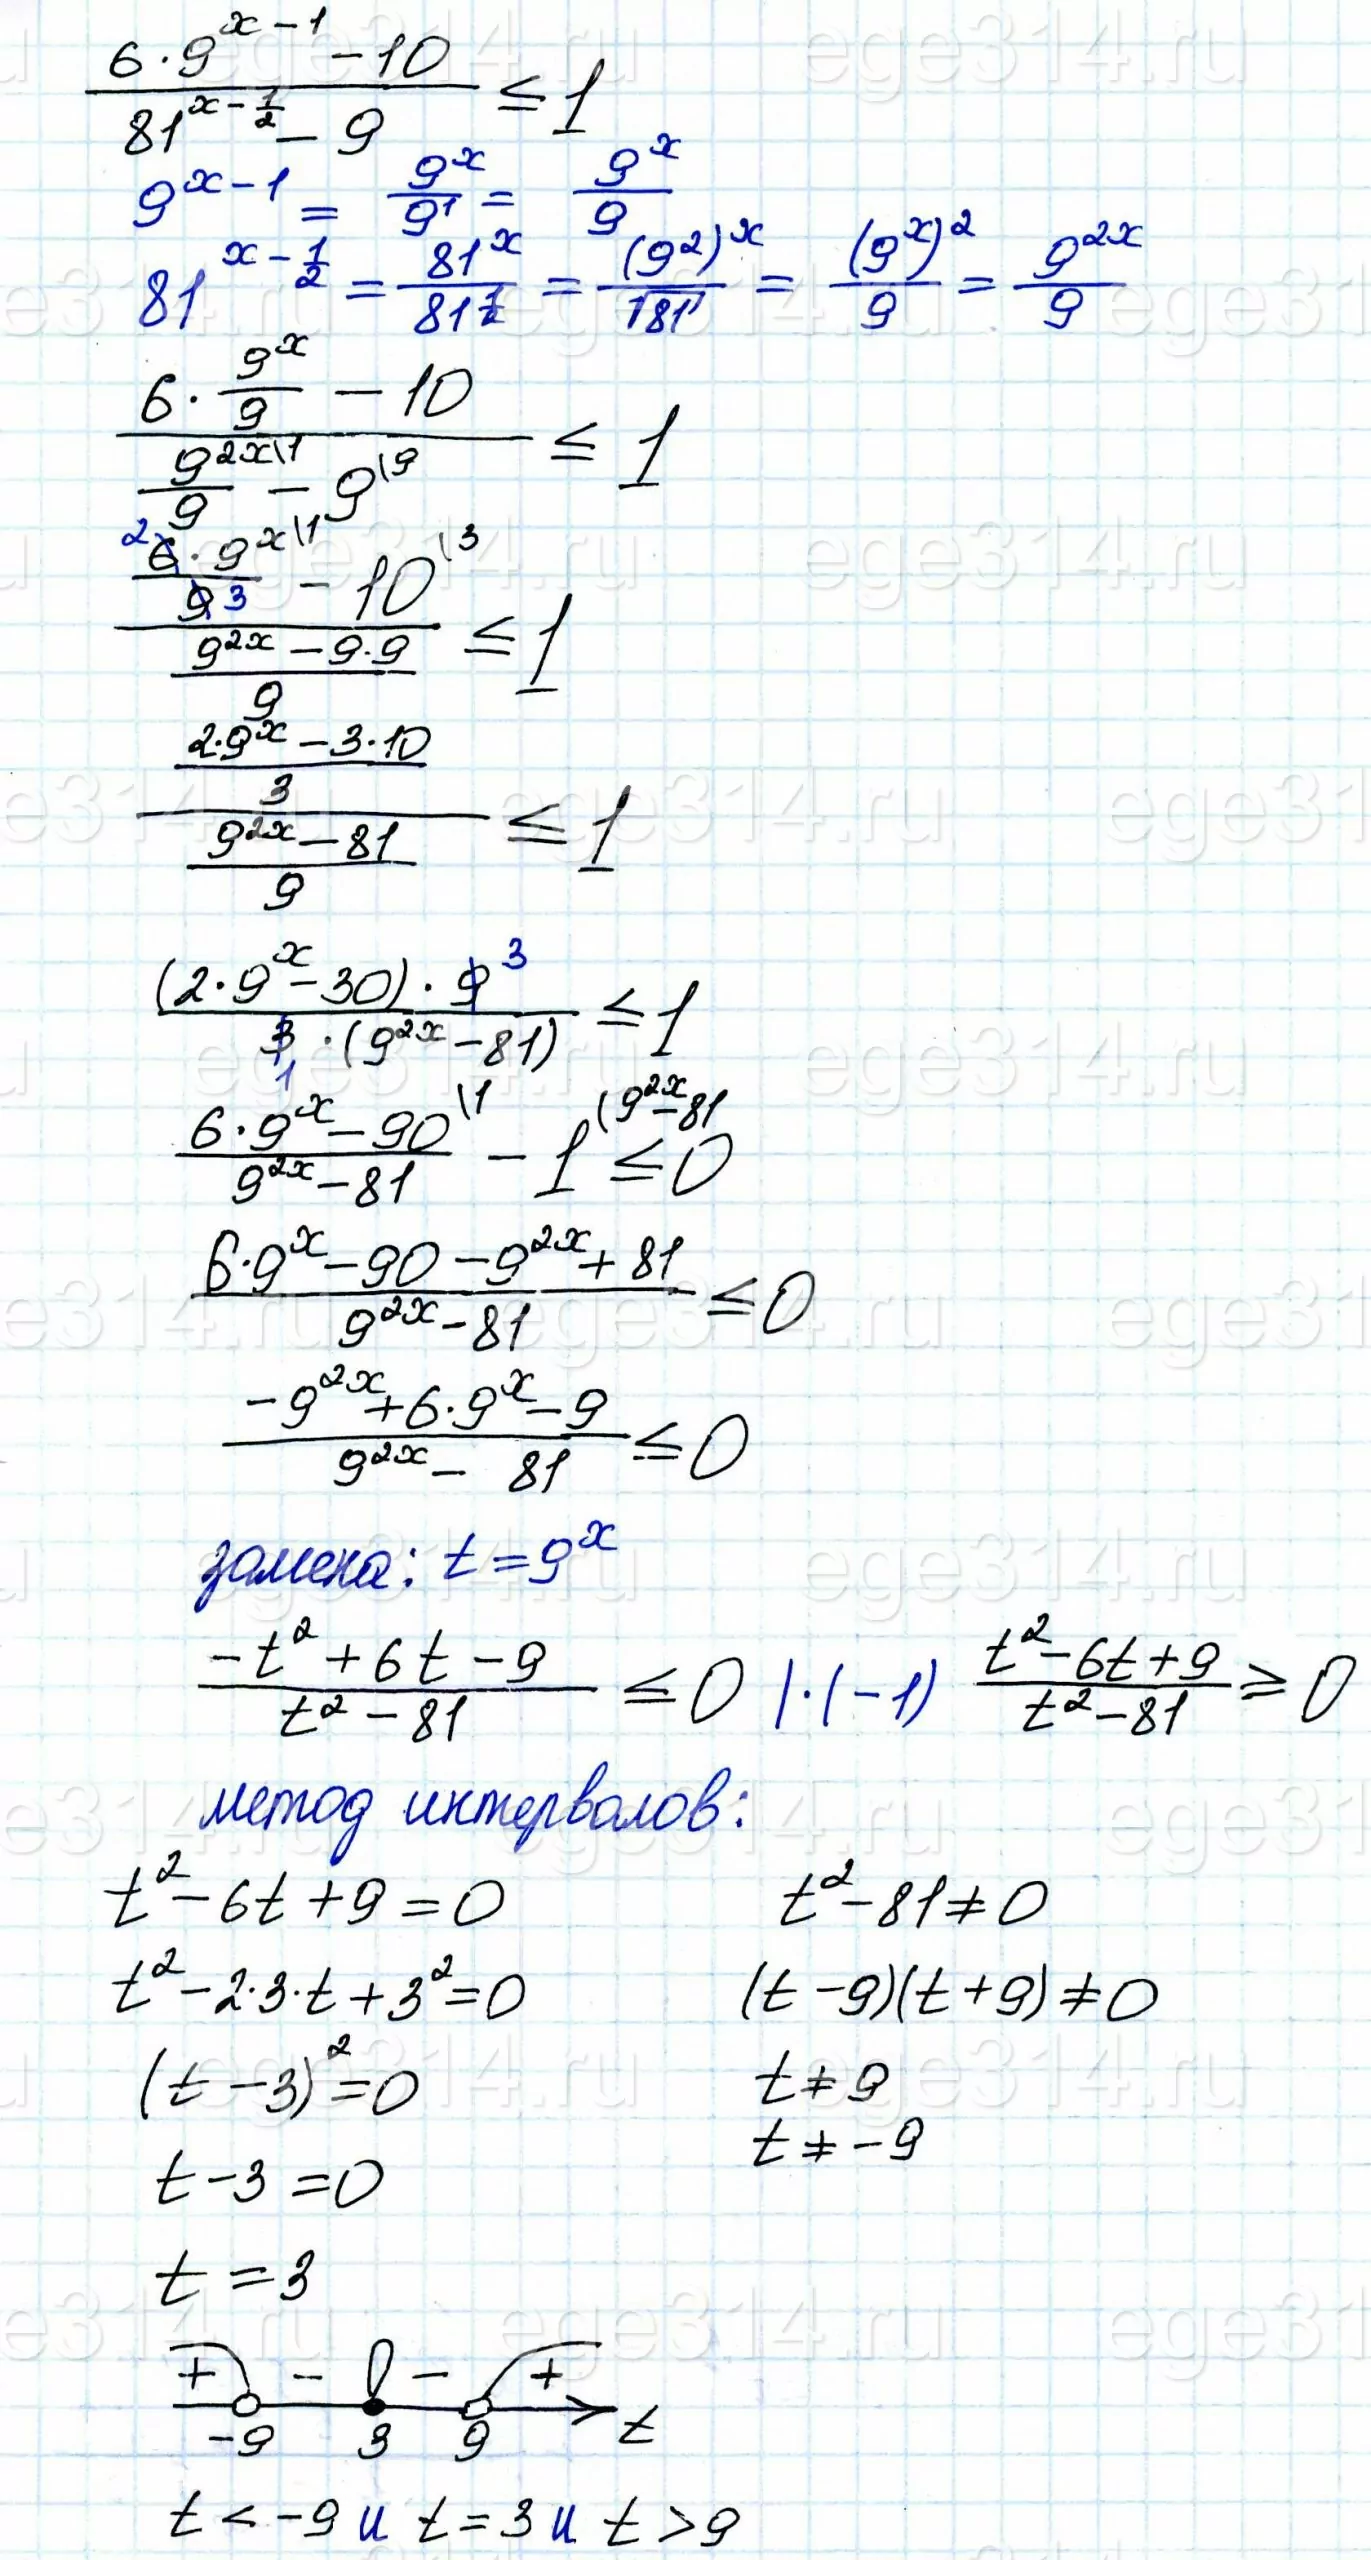 (6·9^(x−1) − 10)/(81^(x−1/2) − 9) ≤ 1
9^(x−1) = 9^x/9^1 = 9^x/9
81^(x−1/2) = 81^x/81^(1/2) = (9^2)^x/√81 = (9^x)^2/9 = 9^(2x)/9
(6·9^x/9 − 10)/(9^(2x)\1/9 − 9\9) ≤ 1
(2 6·9^x\1/9 3 − 10\3)/((9^(2x) − 9·9)/9) ≤ 1
((2·9^x − 3·10)/3)/((9^(2x) − 81)/9) ≤ 1
((2·9^x − 30)·9 3)/(3 1·(9^(2x) − 81)) ≤ 1
(6·9^x − 90)\1/(9^(2x) − 81) − 1\9^(2x)−81 ≤ 0
(6·9^x − 90 − 9^(2x) + 81)/(9^(2x) − 81) ≤ 0
(−9^(2x) + 6·9^x − 9)/(9^(2x) − 81) ≤ 0
замена: t = 9^x
(−t² + 6t − 9)/(t² − 81) ≤ 0 |·(−1) (t² − 6t + 9)/(t² − 81) ≥ 0
метод интервалов:
t² − 6t + 9 = 0 t² − 81 ≠ 0
t² − 2·3·t + 3² = 0 (t − 9)(t + 9) ≠ 0
(t − 3)² = 0 t ≠ 9
t − 3 = 0 t ≠ −9
t = 3
+ − − +
−9 3 9 t
t < −9 и t = 3 и t > 9
ege314.ru